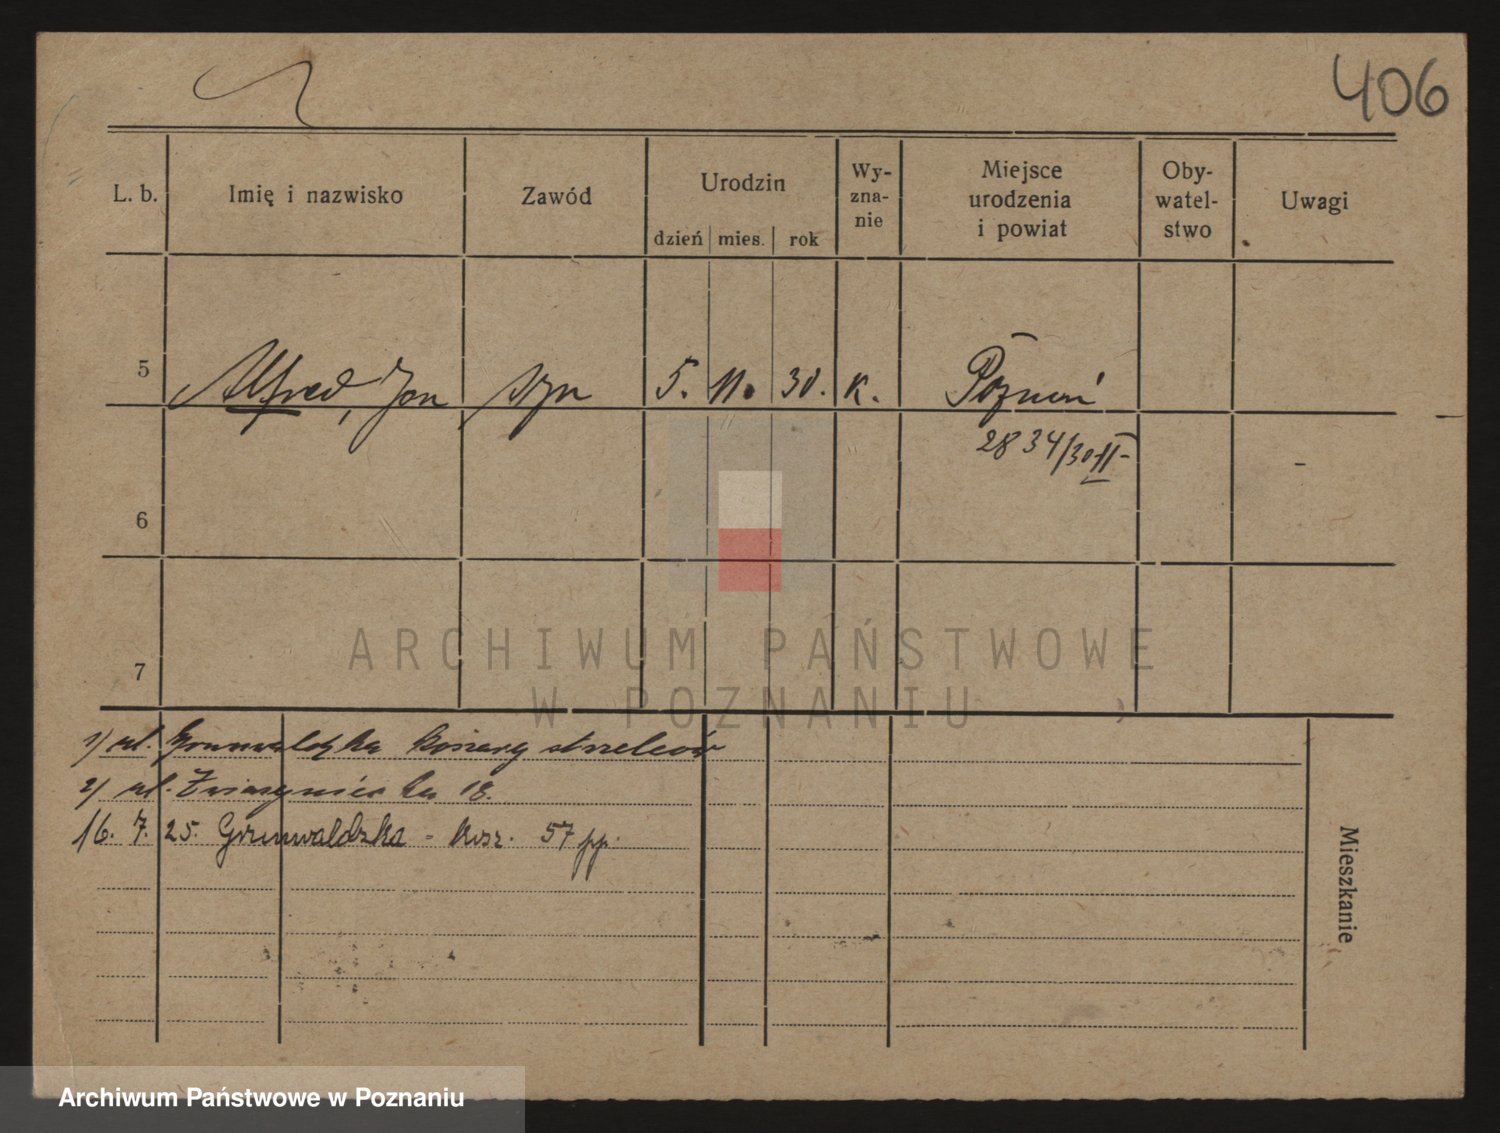 406
L. b.
Imię i nazwisko
Zawód
Urodzin
dzień mies. rok
Wy-
zna-
nie
Miejsce
urodzenia
i powiat
Oby-
watel-
stwo
Uwagi
5 Alfred, Jan syn 5. 11. 30. k. Poznań
2834/30 II
6
7
ARCHIWUM PAŃSTWOWE
W POZNANIU
1) ul. Grunwaldzka Koszary strzelców
2) ul. Zwierzyniecka 18.
16. 7. 25. Grunwaldzka - Kosz. 57 pp.
Mieszkanie
Archiwum Państwowe w Poznaniu